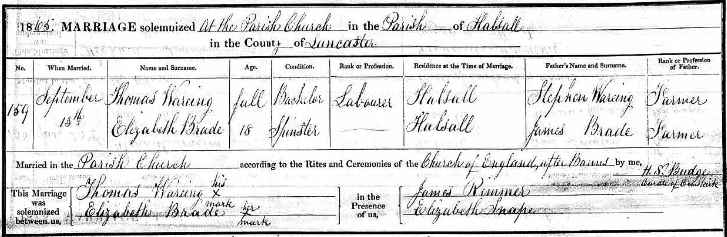 1865. MARRIAGE solemnized at the Parish Church in the Parish of Halsall
in the County of Lancaster
No. When Married. Name and Surname. Age. Condition. Rank or Profession. Residence at the Time of Marriage. Father's Name and Surname. Rank or Profession of Father.
159 September 13th Thomas Wareing full Bachelor Labourer Halsall Stephen Wareing Farmer
Elizabeth Brade 18 Spinster — Halsall James Brade Farmer
Married in the Parish Church according to the Rites and Ceremonies of the Church of England, after Banns by me,
H. S. Budge
Curate of
This Marriage was solemnized between us, Thomas Wareing his x mark in the Presence of us, James Rimmer
Elizabeth Brade her x mark Elizabeth Snape